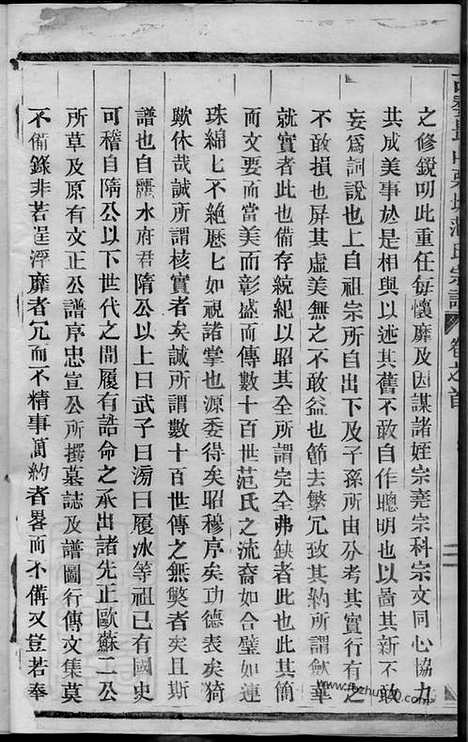 之修銳明此重任每懷靡及因謀諸姪宗堯宗科宗文同心協力
共成美事於是相與以述其舊不敢自作聰明也以啚其新不敢
妄爲詞說也上自祖宗所自出下及子孫所由分考其實行有之
不敢損也屏其虛美無之不敢益也節去繁冗致其約所謂斂華
就實者此也備存統紀以昭其全所謂完全弗缺者此也其簡
而文要而當美而彰盛而傳數十百世范氏之流裔如合璧如連
珠綿匕不絕歷匕如視諸掌也源委得矣昭穆序矣功德表矣猗
歟休哉誠所謂核實者矣誠所謂數十百世傳之無斁者矣且斯
譜也自麗水府君隋公以上曰武子曰滂曰履冰等祖已有國史
可稽自隋公以下世代之間履有誥命之承出諸先正歐蘇二公
所草及原有文正公譜序忠宣公所撰墓誌及譜圖行傳文集莫
不備錄非若逞浮靡者冗而不精事簡約者畧而不備又豈若奉
氏宗譜 卷之首
www.fozhu920.com